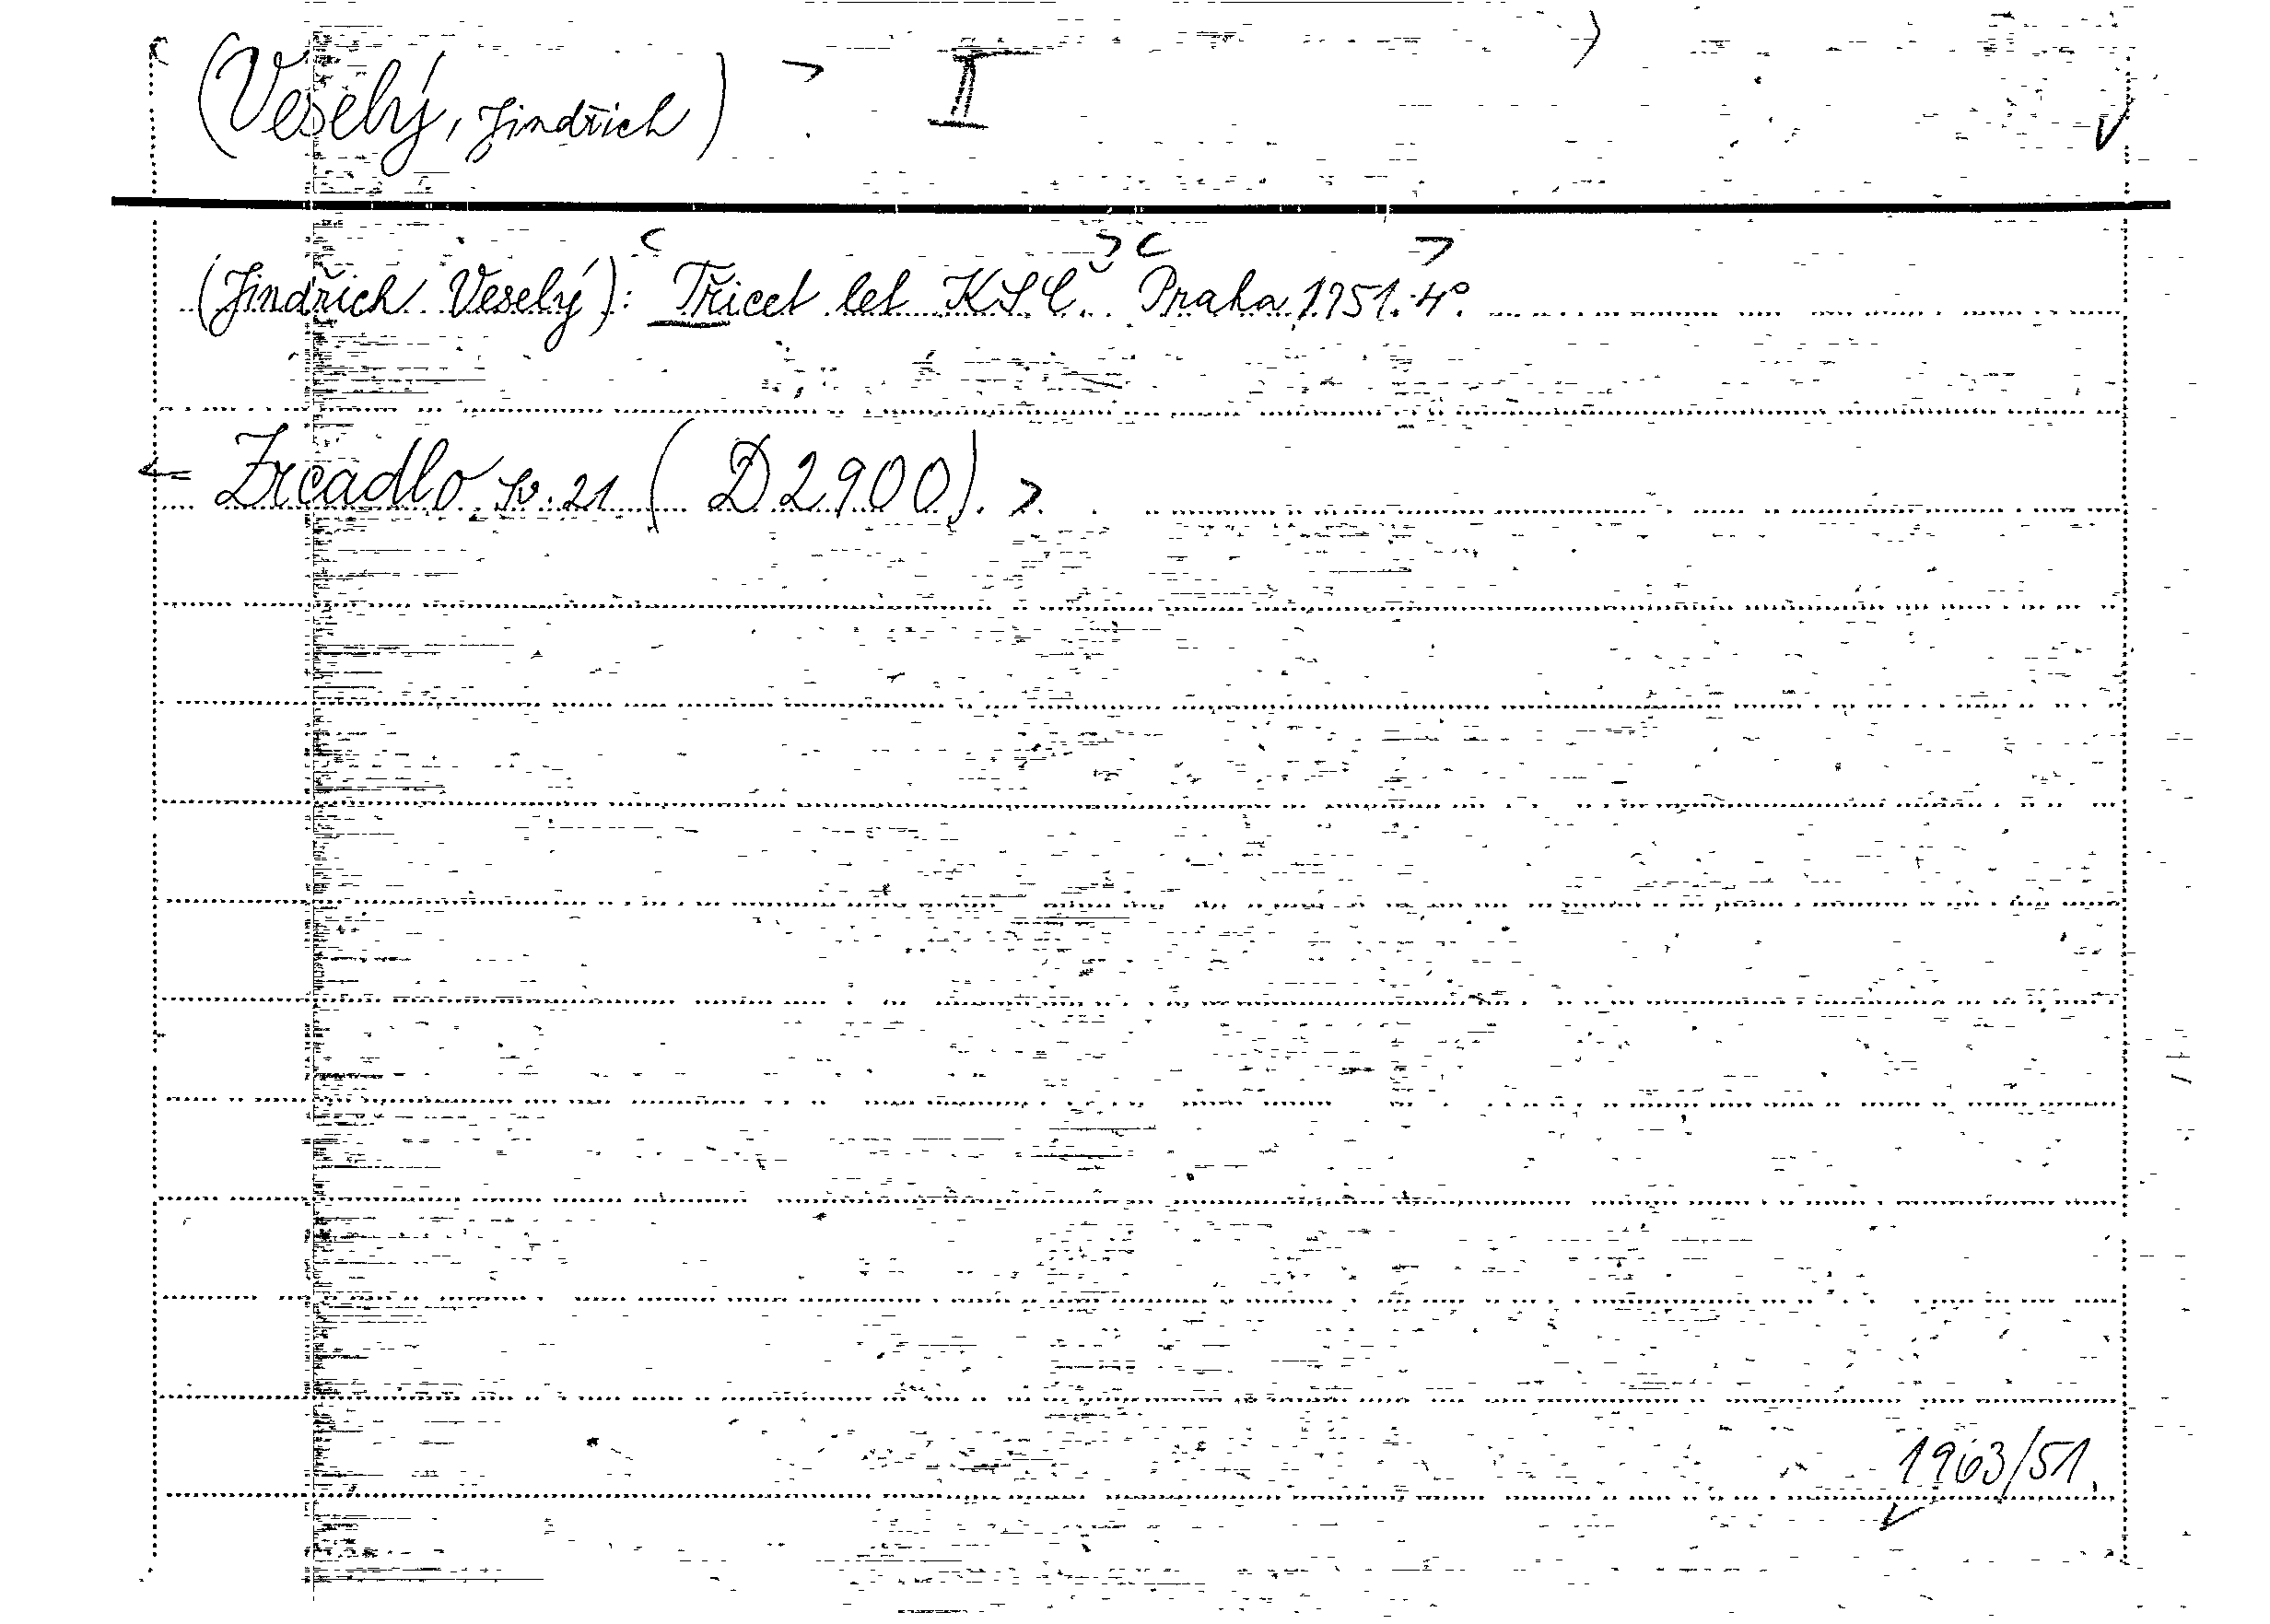 (Veselý, Jindřich) I
(Jindřich Veselý): Třicet let KSČ. Praha, 1951. 4°.
Zrcadlo sv. 21 (D 2900).
1963/51.